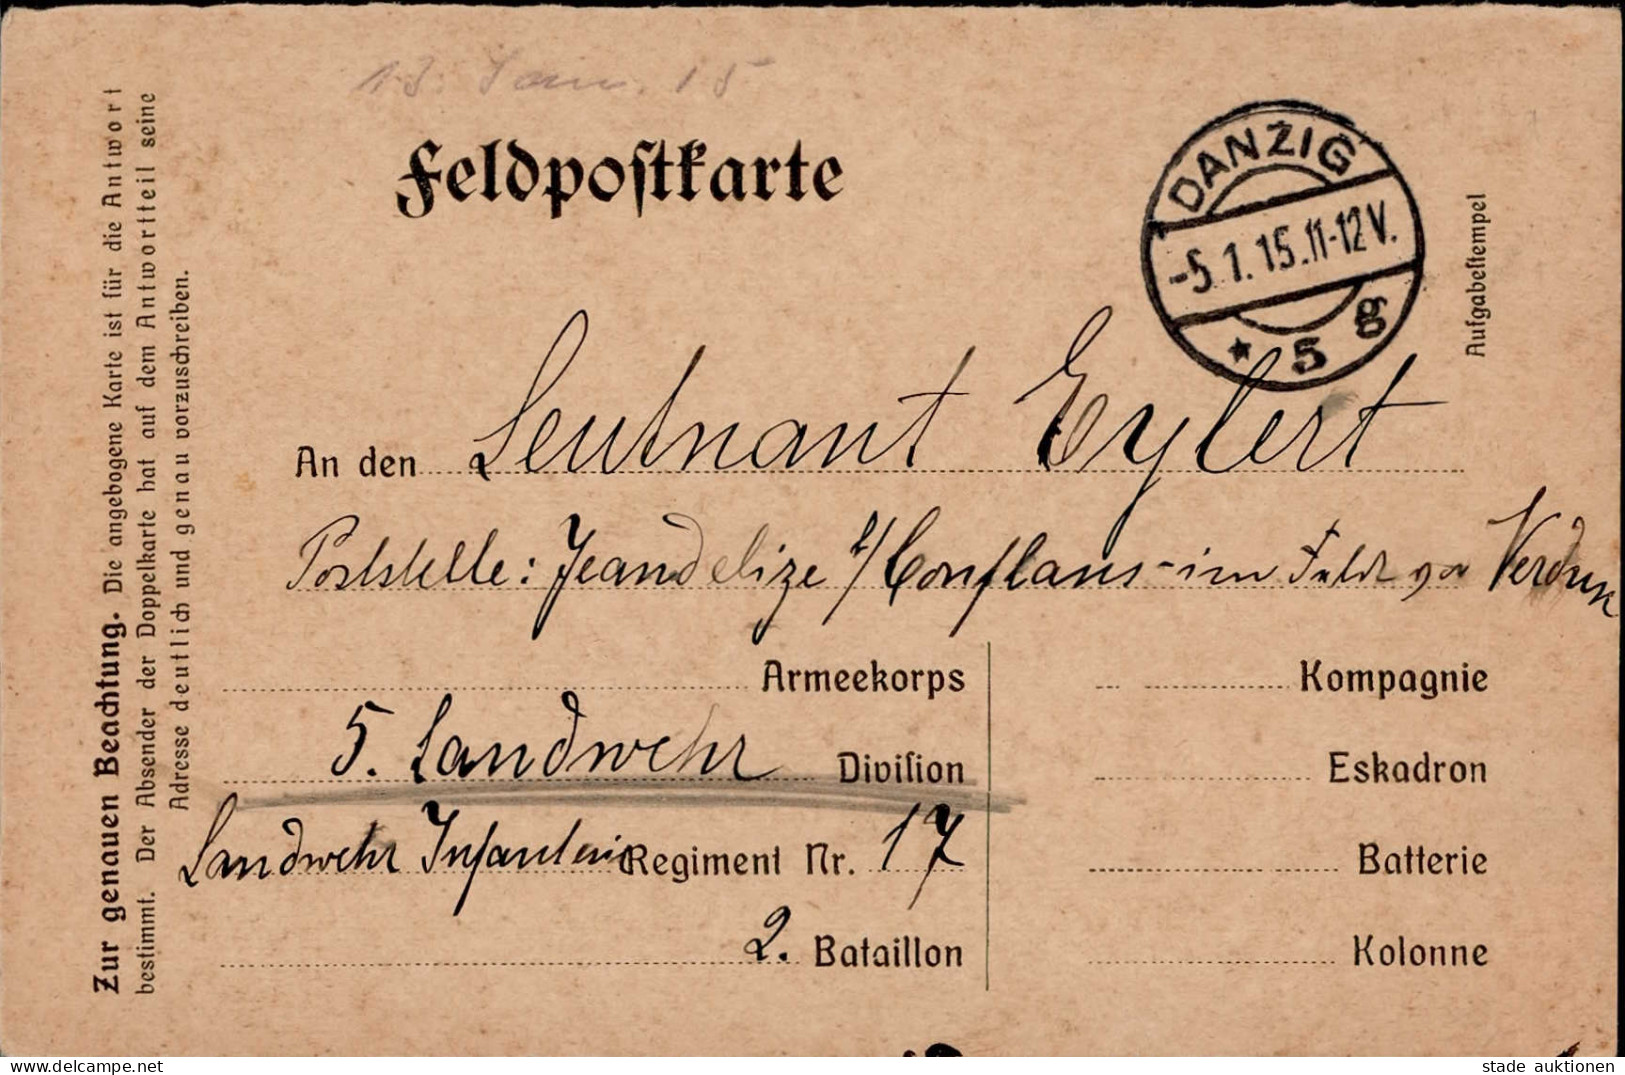 13. Jan. 15
Feldpostkarte
DANZIG
-5.1.15.11-12V.
* 5 g
Aufgabestempel
An den Leutnant Eylert
Poststelle: Jeandelize b/Conflans - im Felde vor Verdun
Armeekorps
5. Landwehr Division
Landwehr Infanterie Regiment Nr. 17
2. Bataillon
Kompagnie
Eskadron
Batterie
Kolonne
Zur genauen Beachtung. Die angebogene Karte ist für die Antwort
bestimmt. Der Absender der Doppelkarte hat auf dem Antwortteil seine
Adresse deutlich und genau vorzuschreiben.
delcampe.net
stade auktionen